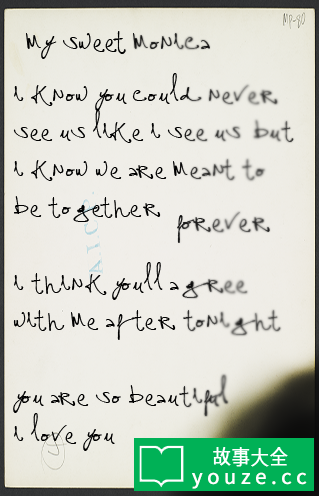 MP-80
My sweet Monica
i know you could never
see us like i see us but
i know we are meant to
be together
forever
i think youll agree
with me after tonight
you are so beautiful
i love you
故事大全
youze.cc